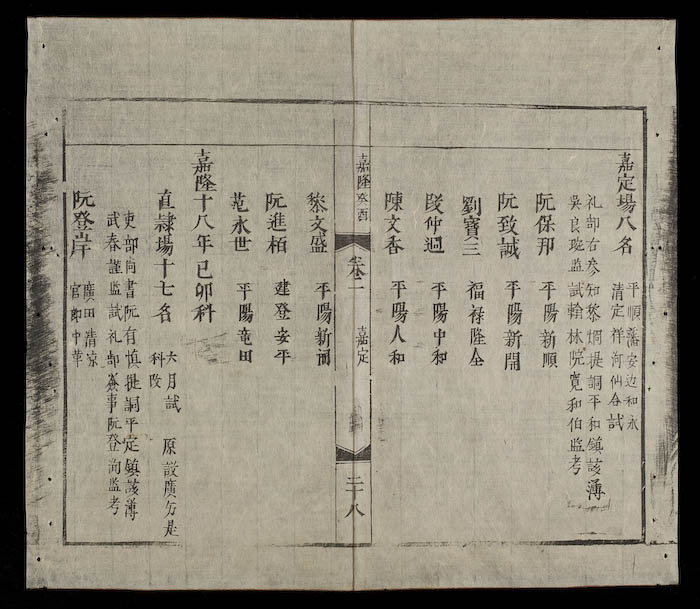 嘉定場八名
平順藩安边和永
清定祥河仙合試
礼部右参知黎㷍提調平和鎮該簿
吳良珗監試翰林院寬和伯监考
阮保邦 平陽新順
阮致誠 平陽新開
劉寶三 福禄隆全
段仲迴 平陽中和
陳文香 平陽人和
嘉隆癸酉 卷一 嘉定 二十八
黎文盛 平陽新
阮進栢 建登安平
范永世 平陽竜田
嘉隆十八年己卯科
直隸場十七名
六月試 原設廣方是
科改
吏部尚書阮有慎提調平定鎮該簿
武春謹监試礼部僉事阮登洵监考
阮登岸
廣田清凉
官 中華